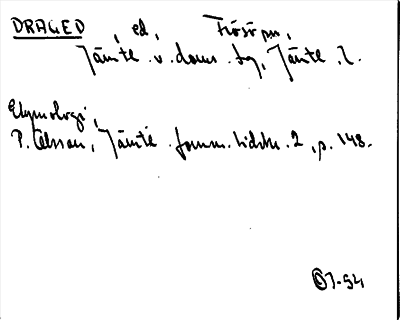 DRAGED, ed, Frösö sn,
Jämtl. v. doms. hg, Jämtl. l.
Etymologi,
P. Olsson, Jämtl. fornm. tidskr. 2, p. 148.
OJ-54